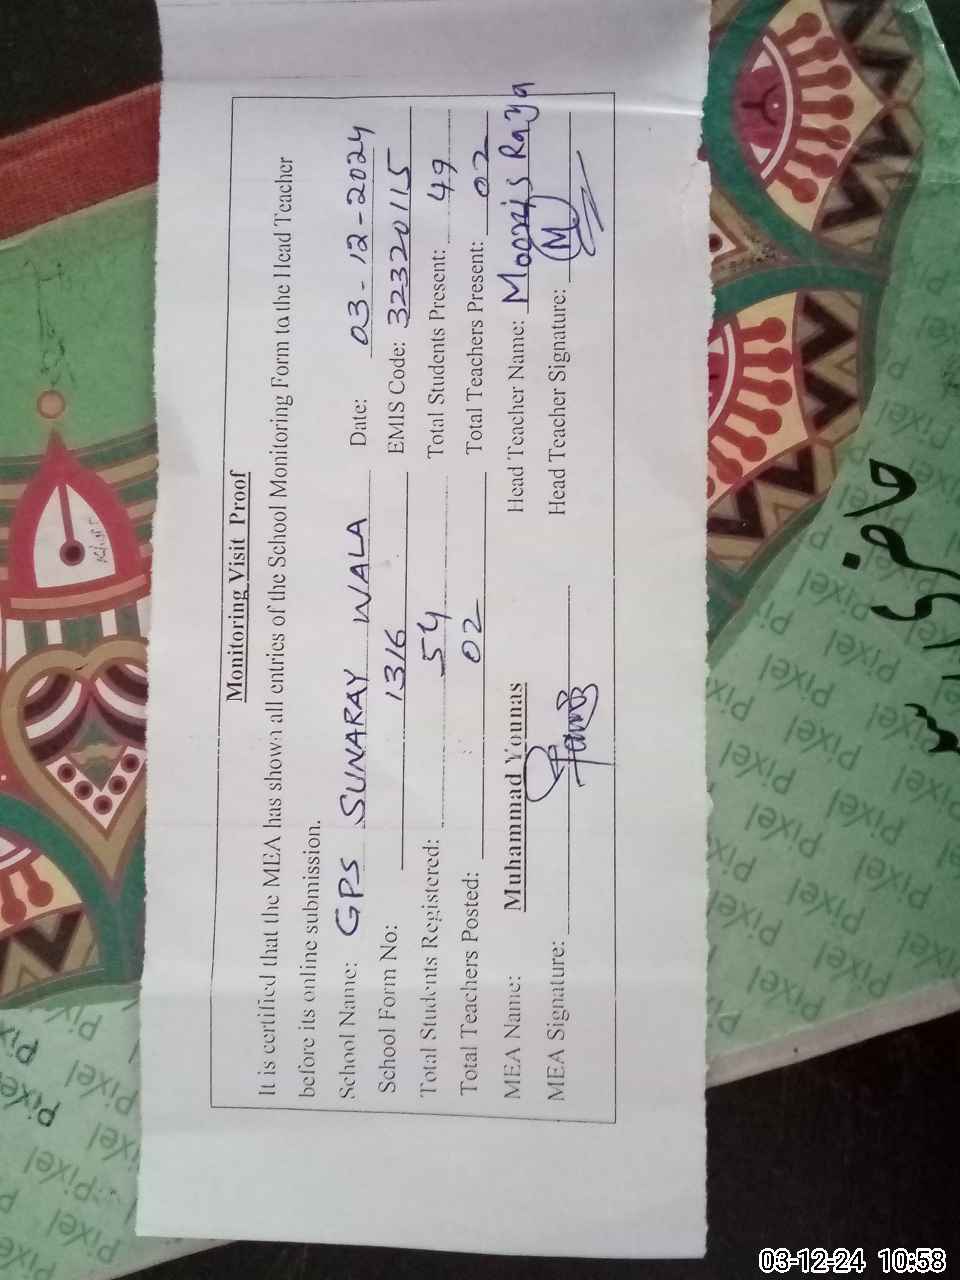 Monitoring Visit Proof
It is certified that the MEA has shown all entries of the School Monitoring Form to the Head Teacher
before its online submission.
School Name: GPS SUNARAY WALA Date: 03-12-2024
School Form No: 1316 EMIS Code: 32320115
Total Students Registered: 54 Total Students Present: 49
Total Teachers Posted: 02 Total Teachers Present: 02
MEA Name: Muhammad Younas Head Teacher Name: Moonis Raza
MEA Signature: Head Teacher Signature: M
Pixel
03-12-24 10:58